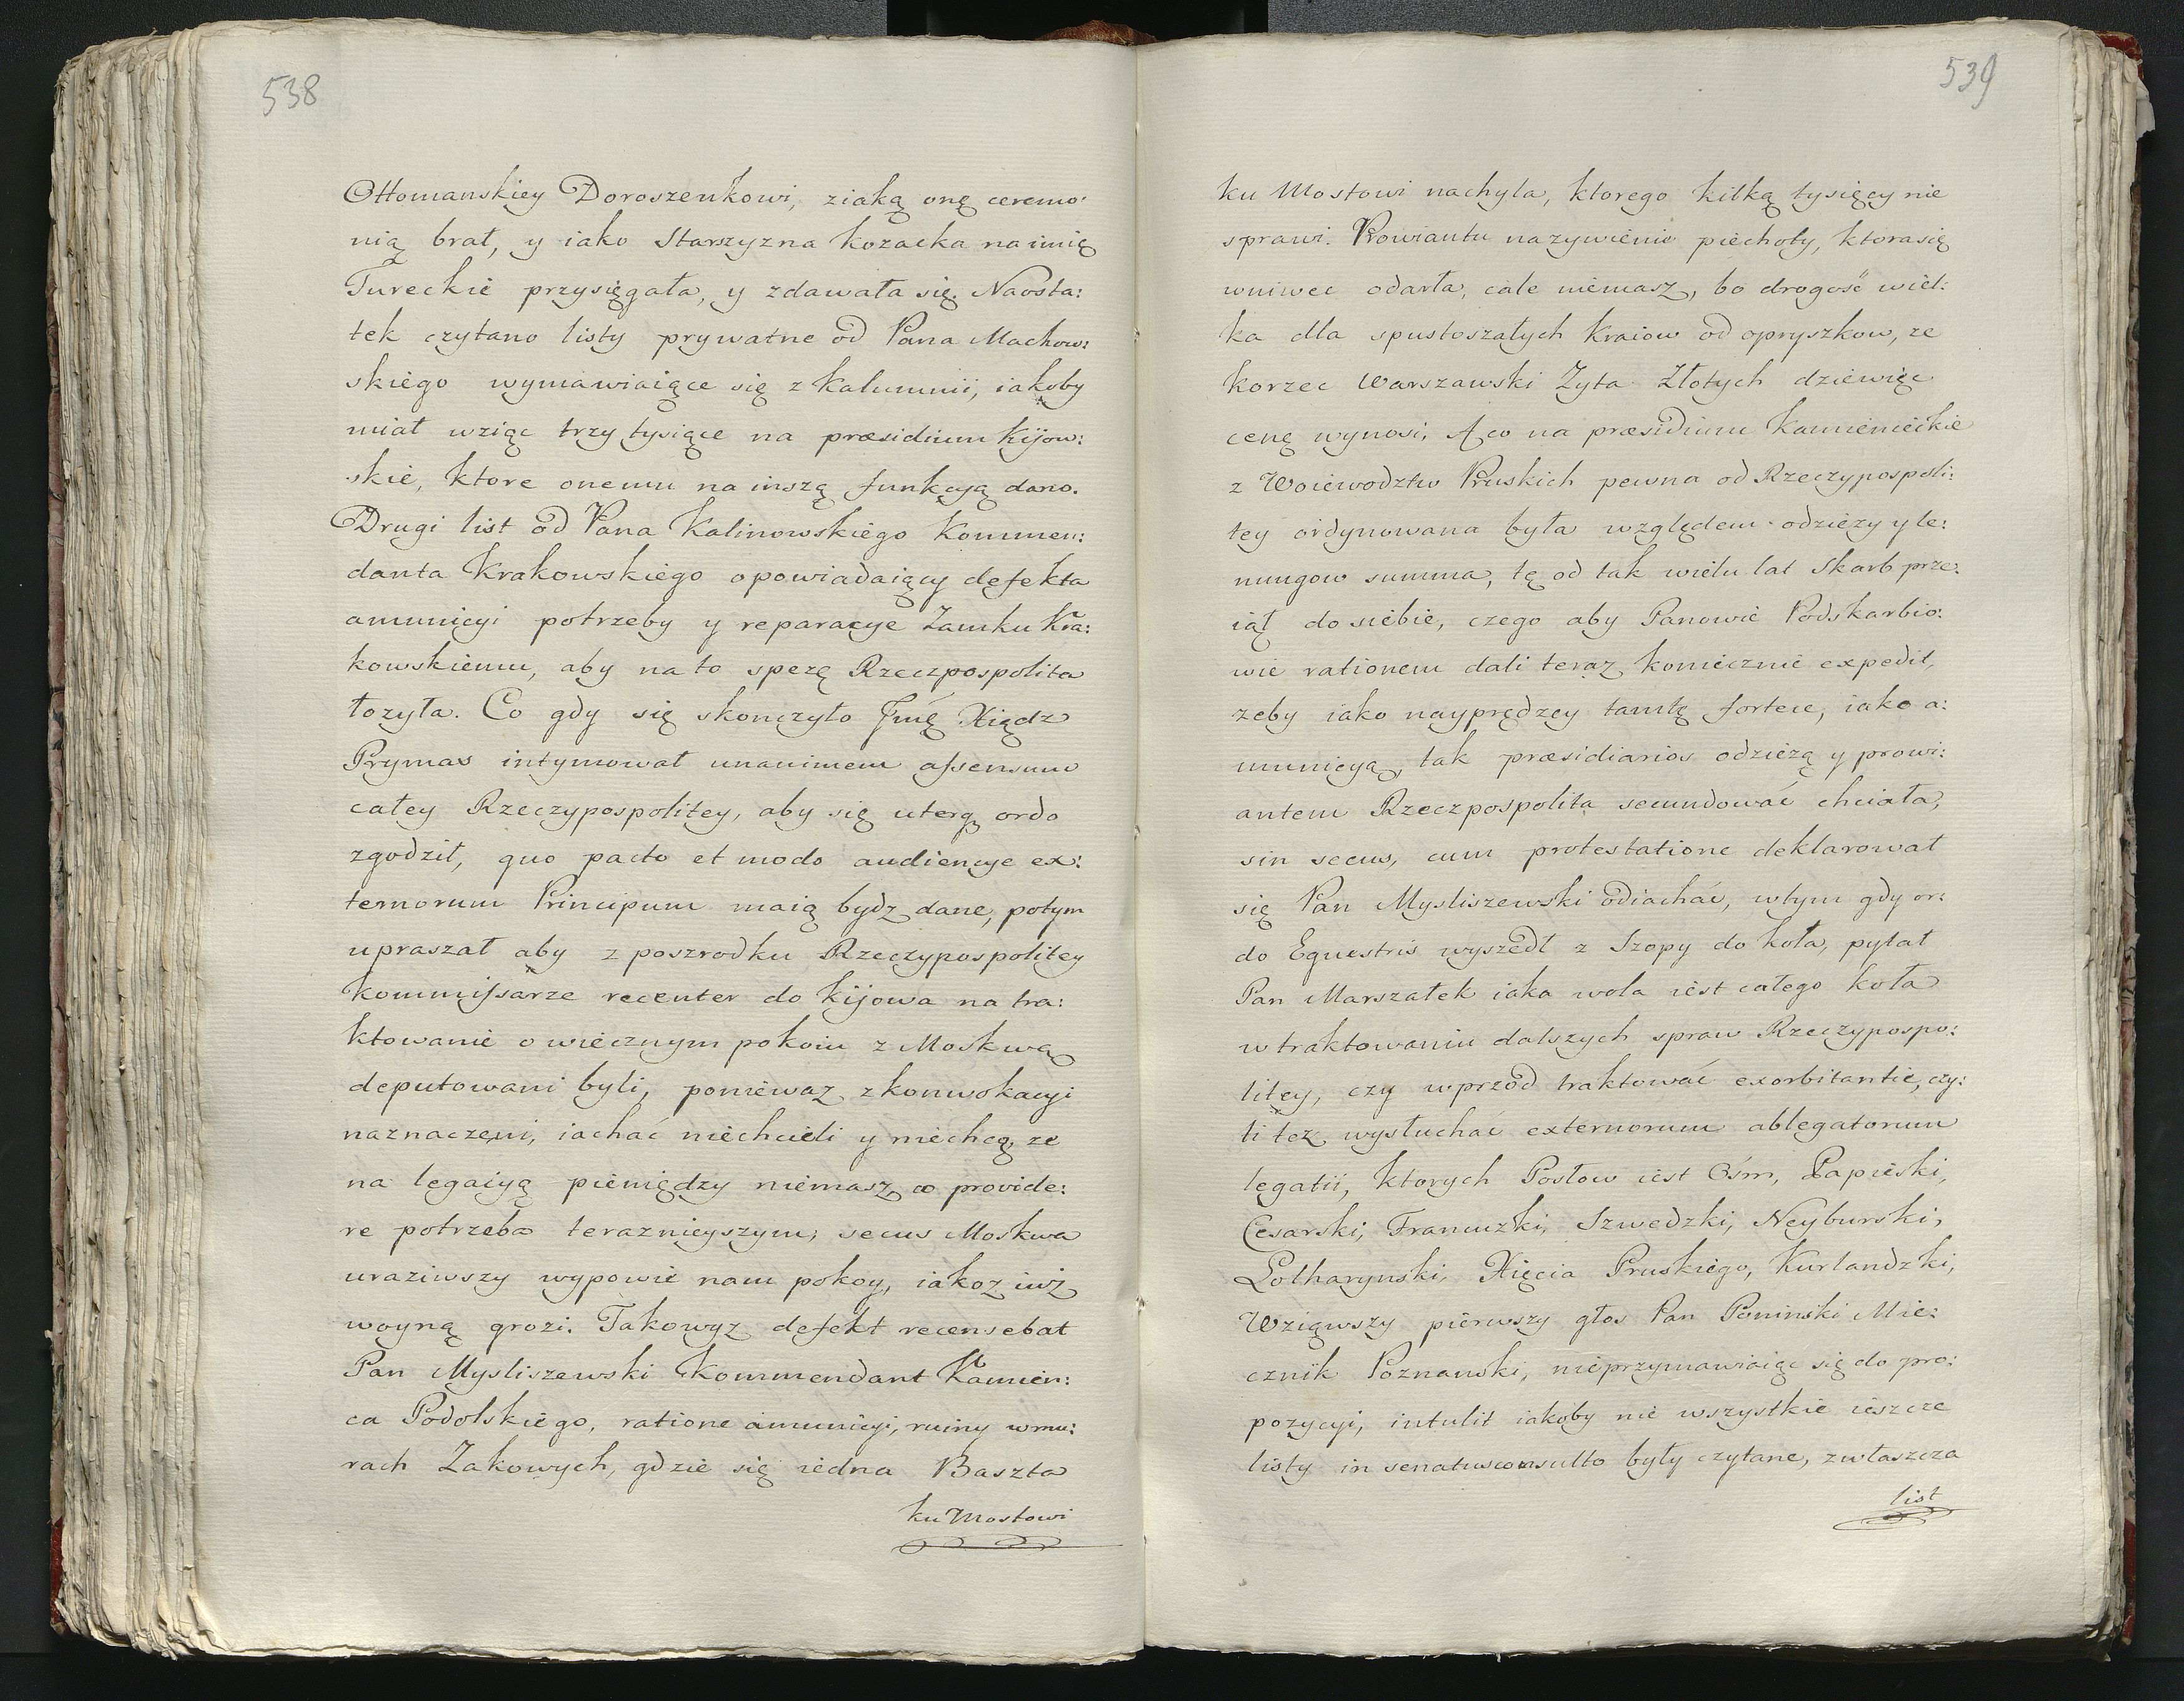 538
Ottomanskiey Doroszenkowi, ziaką onę ceremo:
nią brał, y iako Starszyzna kozacka na imię
Tureckie przysięgała, y zdawała się. Naosta:
tek czytano listy prywatne od Pana Machow:
skiego wymawiaiące się z kalumnii, iakoby
miał wziąc trzy tysiące na præsidium kijow:
skie, ktore onemu na inszą funkcyą dano.
Drugi list od Pana Kalinowskiego Kommen:
danta Krakowskiego opowiadaiący defekta
amunicyi potrzeby y reparacye Zamku Kra:
kowskiemu, aby na to spezę Rzeczpospolita
łozyła. Co gdy się skonczyło Jmę Xiądz
Prymas intymował unanimem assensum
całey Rzeczypospolitey, aby się uterq ordo
zgodził, quo pacto et modo audiencye ex:
ternorum Principum maią bydz dane, potym
upraszał aby z poszrodku Rzeczypospolitey
kommissarze recenter do kijowa na tra:
ktowanie o wiecznym pokoiu z Moskwą
deputowani byli, poniewaz z konwokacyi
naznaczeni, iachać niechcieli y niechcą, ze
na legacyą pieniędzy niemasz, co provide:
re potrzeba teraznieyszym, secus Moskwa
uraziwszy wypowie nam pokoy, iakoz iuż
woyną grozi. Takowyz defekt recensebat
Pan Mysliszewski Kommendant Kamien:
ca Podolskiego, ratione amunicyi, ruiny w mu:
rach Zakowych, gdzie się iedna Baszta
ku Mostowi
539
ku Mostowi nachyla, ktorego kilką tysięcy nie
sprawi. Prowiantu na zywienie piechoty, ktora się
wniwec odarła, cale niemasz, bo drogość wiel:
ka dla spustoszałych kraiow od opryszkow, ze
korzec Warszawski Zyta Złotych dziewięc
cenę wynosi, A co na præsidium Kamienieckie
z Woiewodztw Pruskich pewna od Rzeczypospoli:
tey ordynowana była względem odziezy y le:
nungow summa, tę od tak wielu lat Skarb prze:
iął do siebie, czego aby Panowie Podskarbio:
wie rationem dali teraz koniecznie expedit,
zeby iako nayprędzey tamtę fortece, iako a:
municyą, tak præsidiarios odzieżą y prowi:
antem Rzeczpospolita secundować chciała,
sin secus, cum protestatione deklarował
się Pan Mysliszewski odiachać, w tym gdy or:
do Equestris wyszedł z Szopy do koła, pytał
Pan Marszałek iaka wola iest całego koła
w traktowaniu dalszych spraw Rzeczypospo:
litey, czy wprzod traktować exorbitantie, czy:
li też wysłuchać externorum ablegatorum
legatii, ktorych Posłow iest Ośm, Papieski,
Cesarski, Francuzki, Szwedzki, Neyburski,
Lotharynski, Xięcia Pruskiego, Kurlandzki,
Wziąwszy pierwszy głos Pan Poninski Mie:
cznik Poznanski, nieprzymawiaiąc się do pro:
pozycyi, intulit iakoby nie wszystkie ieszcze
listy in senatusconsulto były czytane, zwłaszcza
list